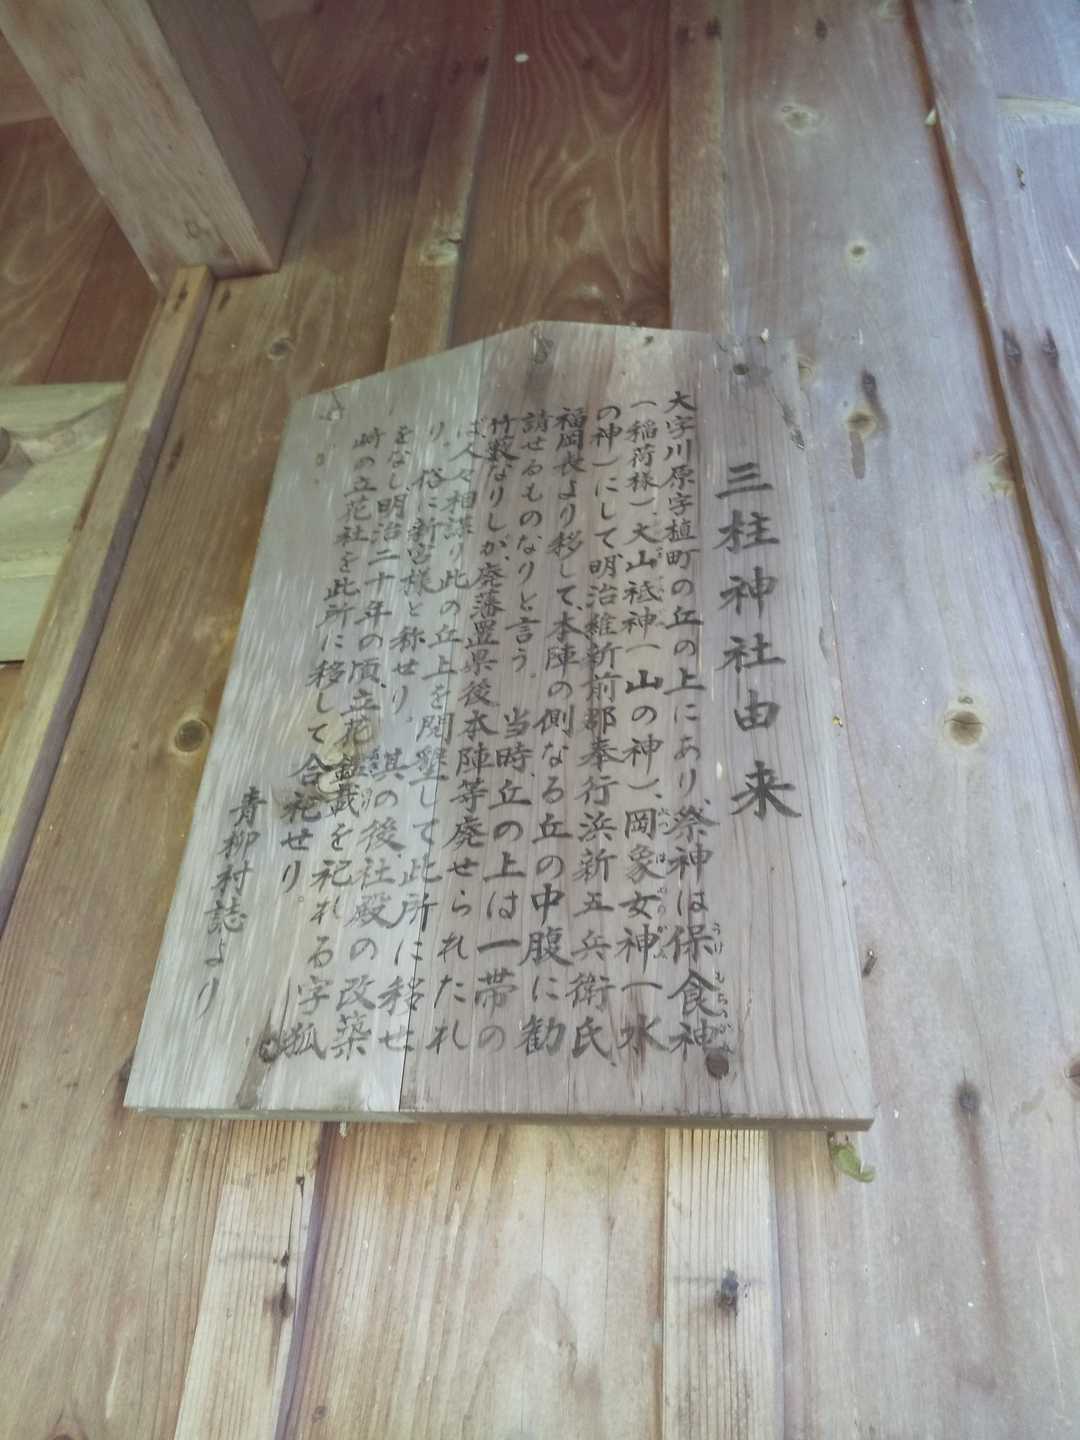 三柱神社由来
大字川原字植町の丘の上にあり、祭神は保食神
(稲荷様)、大山祗神(山の神)、岡象女神(水
の神)にして、明治維新前郡奉行浜新五兵衛氏、
福岡表より移して、本陣の側なる丘の中腹に勧
請せるものなりと言う。当時、丘の上は一帯の
竹藪なりしが、廃藩置県後本陣等廃せられたれ
ば人々相謀り此の丘上を開墾して此所に移せ
り。俗に新宮様と称せり。其の後、社殿の改築
をなし、明治二十年の頃、立花鑑載を祀れる字狐
崎の立花社を此所に移して合祀せり。
青柳村誌より